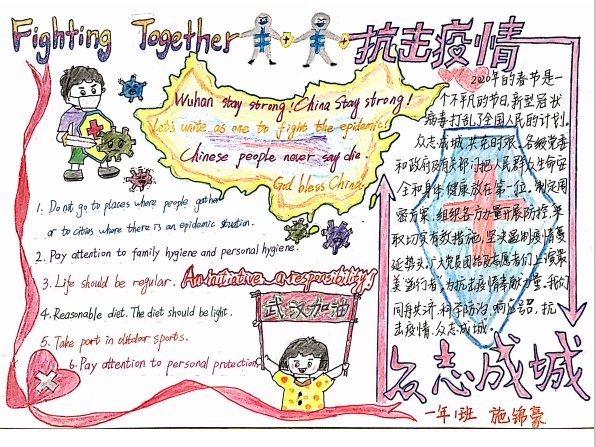 Fighting Together
抗击疫情
Wuhan stay strong! China Stay strong!
Let's unite as one to fight the epidemic!
Chinese people never say die.
God bless China.
1. Do not go to places where people gather
or to cities where there is an epidemic situation.
2. Pay attention to family hygiene and personal hygiene.
3. Life should be regular.
An initiative a responsibility!
4. Reasonable diet. The diet should be light.
5. Take part in outdoor sports.
6. Pay attention to personal protection.
武汉加油
2020年的春节是一
个不凡的节日,新型冠状
病毒打乱了全国人民的计划。
众志成城,共克时艰,各级党委
和政府及有关部门把人民群众生命安
全和身体健康放在第一位,制定周
密方案,组织各方力量开展防控,采
取切实有效措施,坚决遏制疫情蔓
延势头。广大党员团结及志愿者们上演最
美逆行者,为抗击疫情奉献力量,我们
同舟共济,科学防治,响应号召,抗
击疫情,众志成城。
众志成城
一年1班 施锦豪